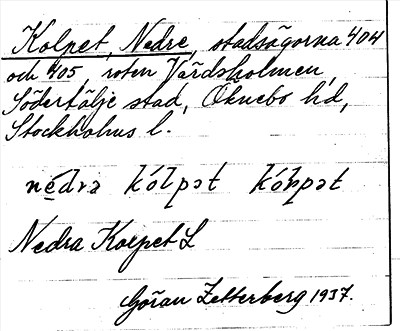 Kolpet, Nedre, stadsägorna 404
och 405, roten Värdsholmen,
Södertälje stad, Öknebo hd,
Stockholms l.
nedrə kólpət kóħpət
Nedra Kolpet L
Göran Zetterberg 1937.